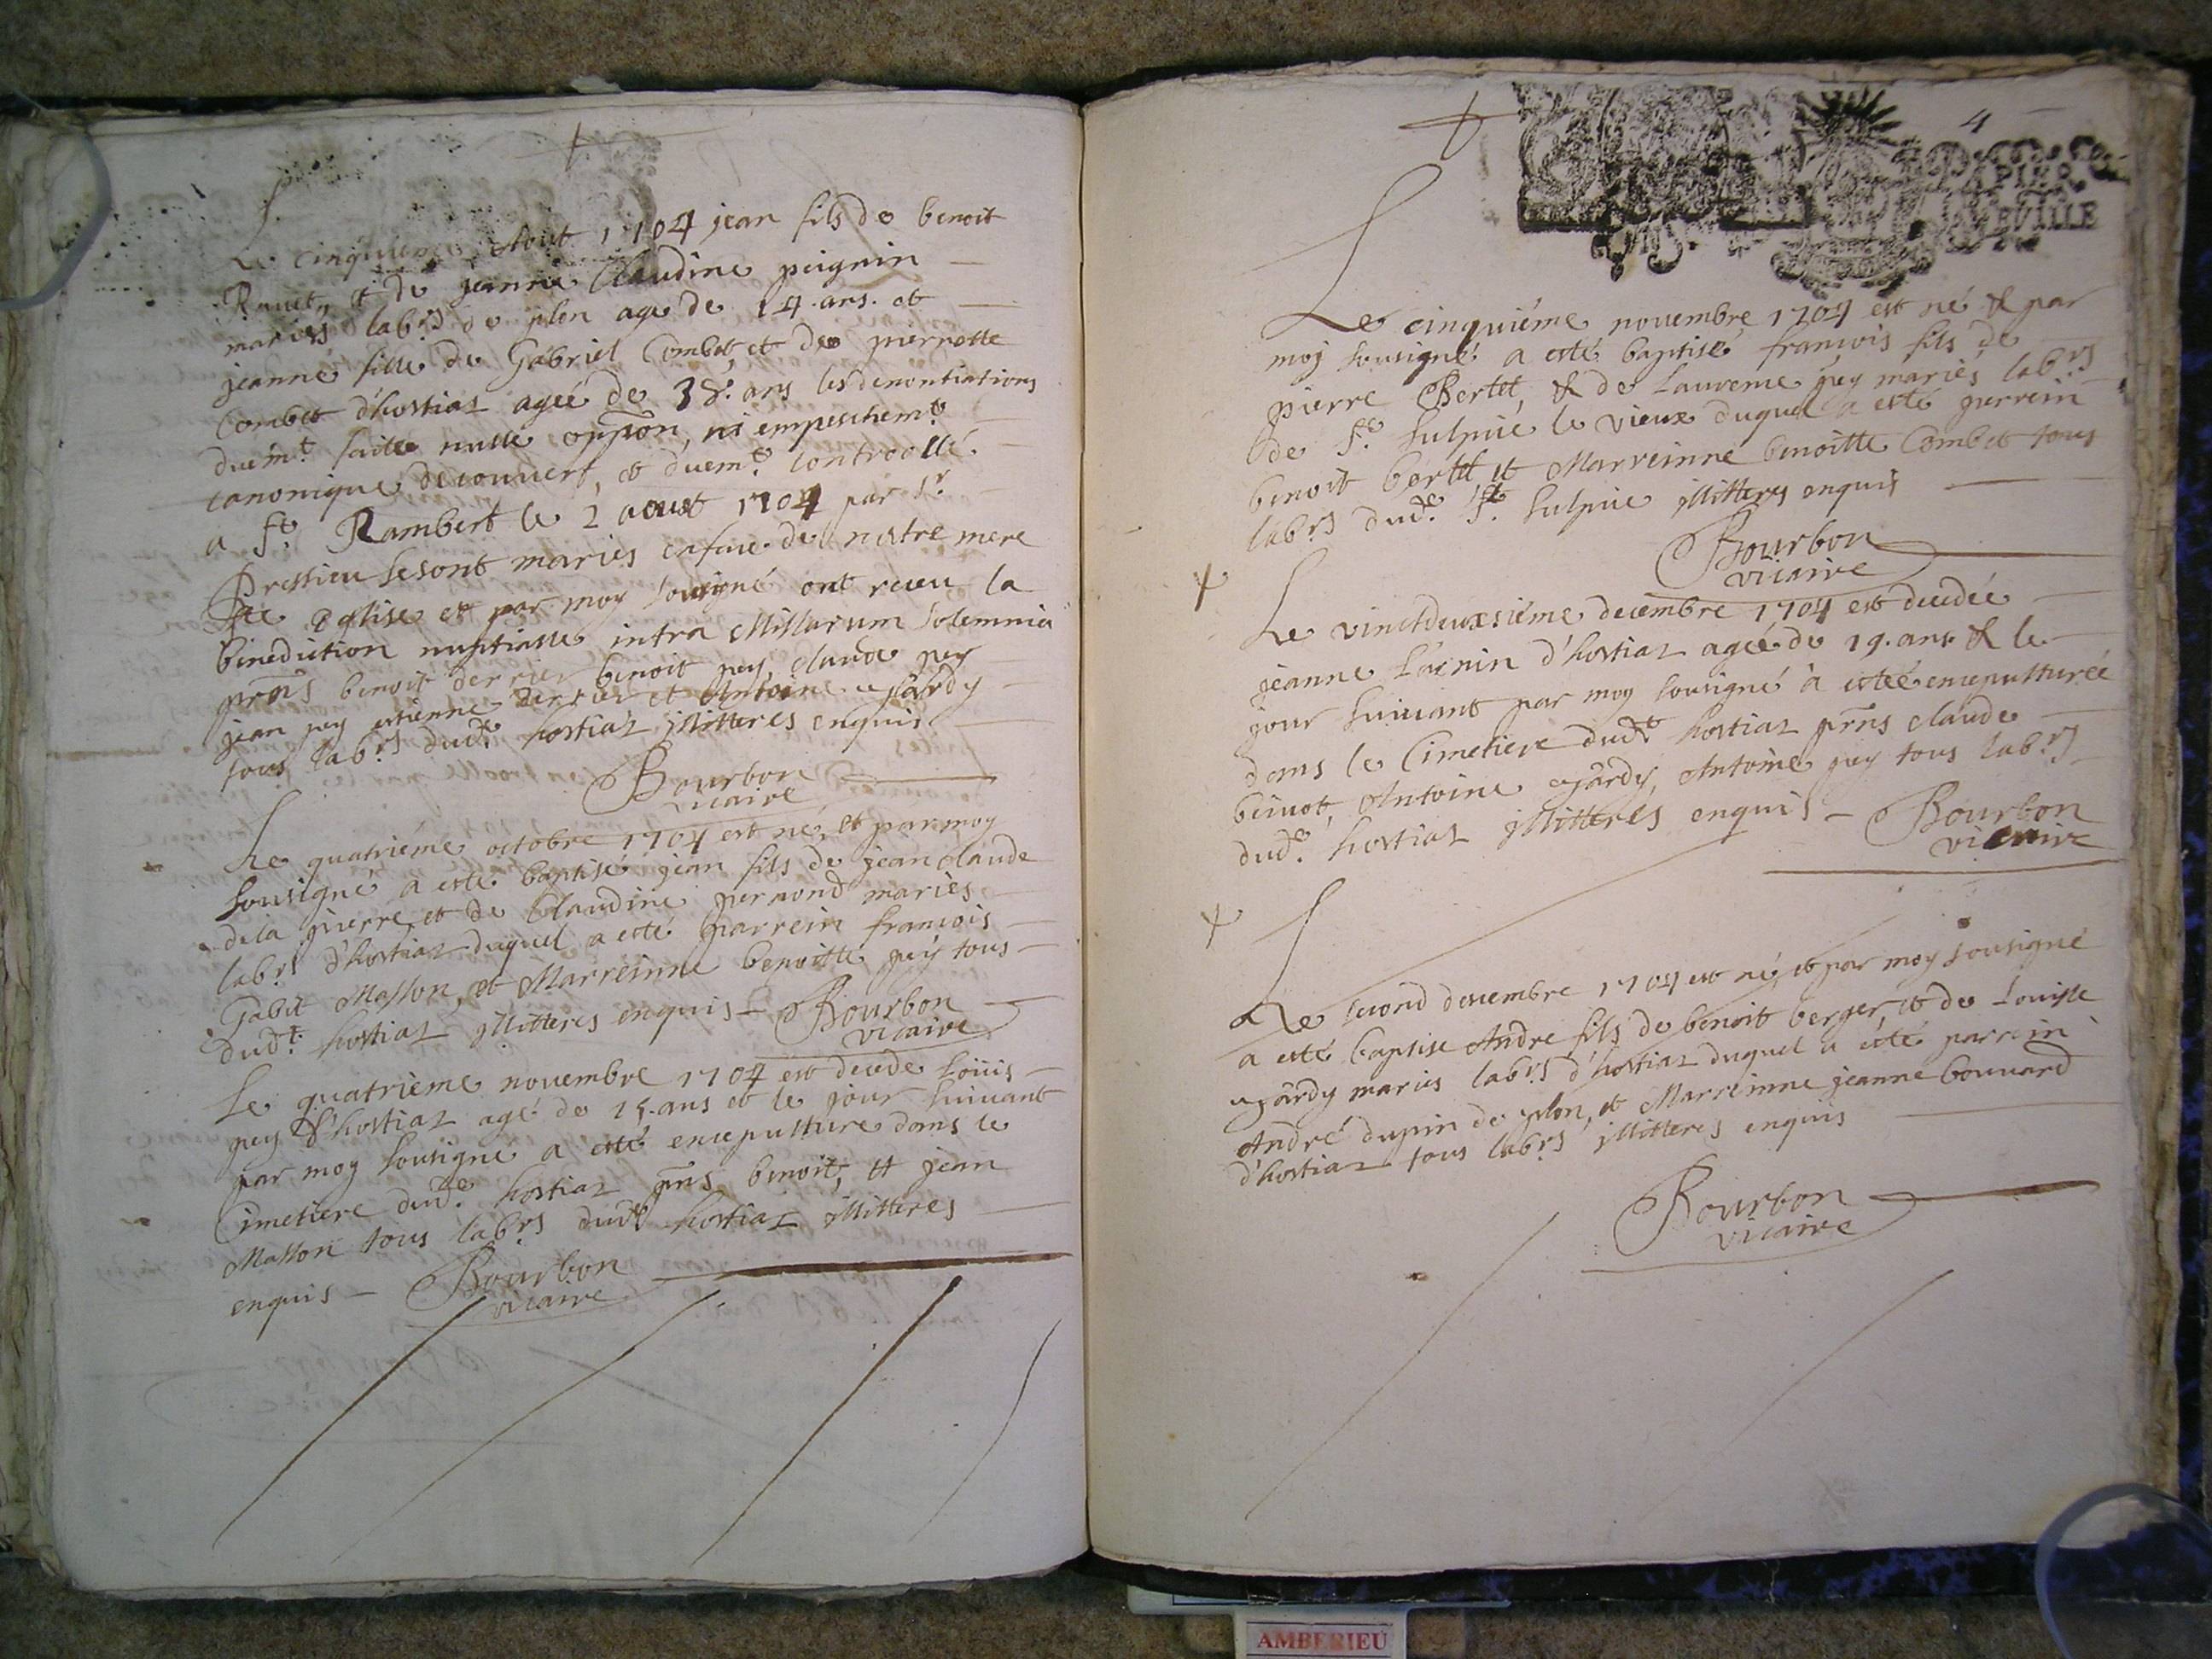 Le cinquieme Aout 1704 jean fils de benoit
Ravet, et de jeanne Claudine peignin
mariers labrs de plon age de 14. ans. et
jeanne fille de Gabriel Combet, et de pierrotte
Combet d'hostiaz ageé de 38. ans les denontiations
duemt. faitte nulle oppõon, ni empeschemt.
canonique decouvert, et duemt. controollé
a st. Rambert le 2 aoust 1704 par sr.
Pressieu se sont maries enface de nostre mere
ste Eglise et par moy sousigné ont receu la
benediction nuptialle intra Missarum solemnia
prñs benoit derrier benoit pey, claude pey
jean pey estienne derrier et Antoine
tous labrs dudt. hostiaz illitteres enquis
Bourbon
vicaire
Le quatriéme octobre 1704 est né, et par moy
sousigné a esté baptisé jean fils de jean claude
dela pierre, et de Claudine pernond mariés
labrs d'hostiaz duquel a esté parrein francois
Gabet Masson, et Marreinne benoitte pey tous
dudt. hostiaz illitteres enquis - Bourbon
vicaire
Le quatrieme novembre 1704 est decede Loüis
pey d'hostiaz agé de 15. ans et le jour suivant
par moy sousigné a esté ensepulture dans le
Cimetiere dude. hostiaz prñs benoit, et jean
Masson tous labrs dudt hostiaz illitteres
enquis - Bourbon
vicaire
4
PAPIER
Le cinquiéme novembre 1704 est né & par
moy sousigné a esté baptisé francois fils de
pierre Bertet, & de Laurence pey mariés labrs
de st. sulpice le vieux duquel a esté perrein
benoit bertet, et Marreinne benoitte Combet tous
labrs dude. st. sulpice illitteres enquis
Bourbon
vicaire
Le vinctdeuxsiéme decembre 1704 est decedée
jeanne d'hostiaz ageé de 19. ans & le
jour suivant par moy sousigné à esteé ensepulturée
dans le Cimetiere dudt hostiaz prñs claude
Antoine Antoine pey tous labrs
dude. hostiaz illitteres enquis - Bourbon
vicaire
Le second decembre 1704 est né, et par moy sousigné
a esté baptise Andre fils de benoit berger, et de Louisse
maries labrs d'hostiaz duquel a esté parrein
André dupin de plon, et Marreinne jeanne bouvard
d'hostiaz tous labrs illitteres enquis
Bourbon
vicaire
AMBERIEU